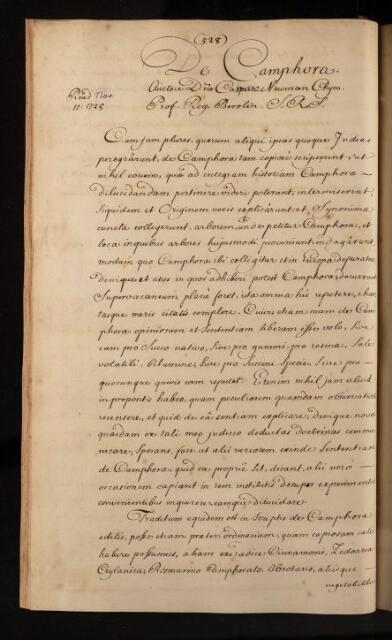 (328)
De Camphora.
Auctore Dno Casparo Neuman Chym.
Prof. Reg. Berolin. S.R.S.
Read Nov.
11. 1725
Cum jam plures, quorum aliqui ipsas quoque Indias
peragrârunt, de Camphora tam copiosè scripserunt, ut
nihil eorum, quæ ad integram historiam Camphoræ
dilucidandam pertinere videri poterant, intermiserint,
siquidem et Originem vocis explicârunt, et Synonima
cuncta collegerunt, arborem, unde petitur Camphora, et
loca in quibus arbores hujusmodi proveniunt indagârunt,
modum quo Camphora ibi colligitur et in Europa depuratur
denique et usus in quos adhiberi potest Camphora, docuerunt
Supervacaneum planè foret, ista omnia hic repetere, char-
tasque meris citatis complere. Cuivis etiam nam de Cam
phora opinionem et Sententiam liberam esse volo, sive
eam pro Succo nativo, sive pro gummi, pro resina, Sale
volatili, Bitumine, sive pro Succini Specie, sive pro
quocunque quivis eam reputat. Etenim nihil jam aliud
in propositis habeo, quam peculiarem quandam observationem
recensere, et quid de eâ sentiam explicare, denique novas
quasdam ex tali meo judicio deductas doctrinas commu
nicare, Sperans, fore ut alii veriorem exinde Sententiam
de Camphora, quid ea propriè sit, dicant, alii verò
occasionem capiant in rem institutis desuper experimentis
convenientibus inquirere, eamque dilucidare.
Traditum equidem est in Scriptis de Camphora
editis, posse etiam præter ordinariam, quam copiosam satis
habere possumus, aliam ex radice Cinnamomi, Zedoaria
Ceylanica, Rosmarino Camphorato, Abrotano, aliisque
vegetabilibus